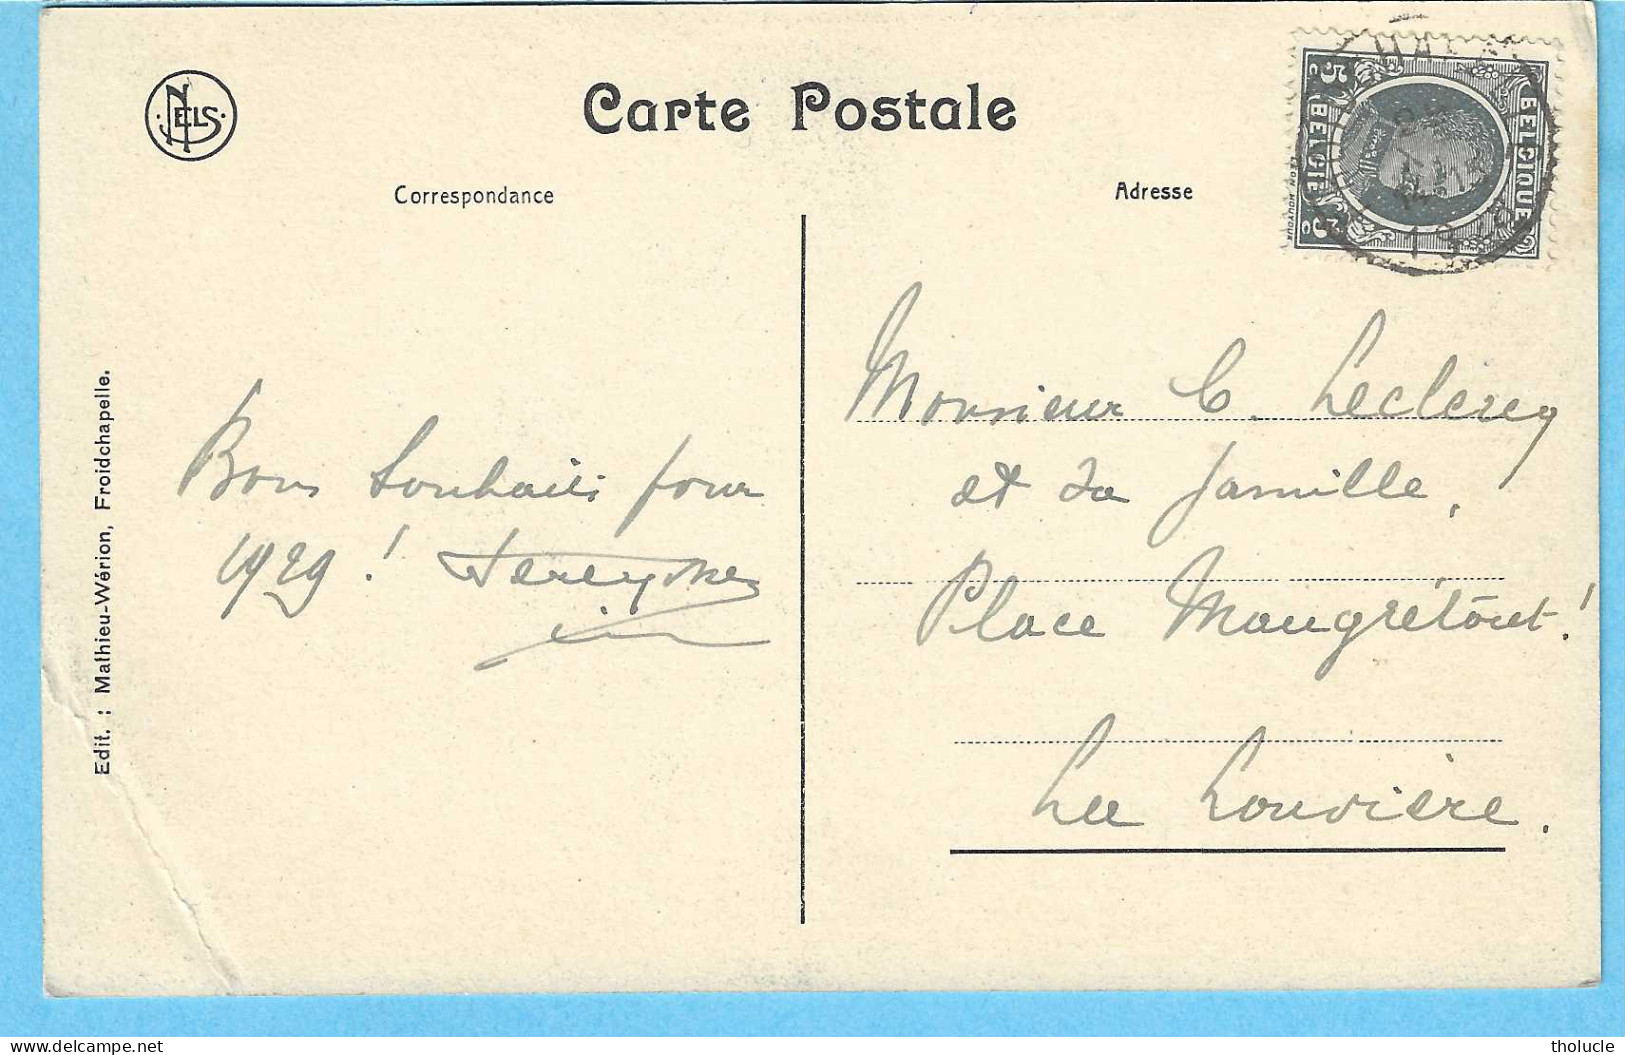 NELS
Carte Postale
Correspondance
Adresse
5 c BELGIË 5 c
BELGIQUE
Bons Souhaits pour
1929 !
Monsieur C. Leclercq
et sa famille,
Place Maugrétout!
La Louvière.
Edit. : Mathieu-Wérion, Froidchapelle.
delcampe.net
tholucle